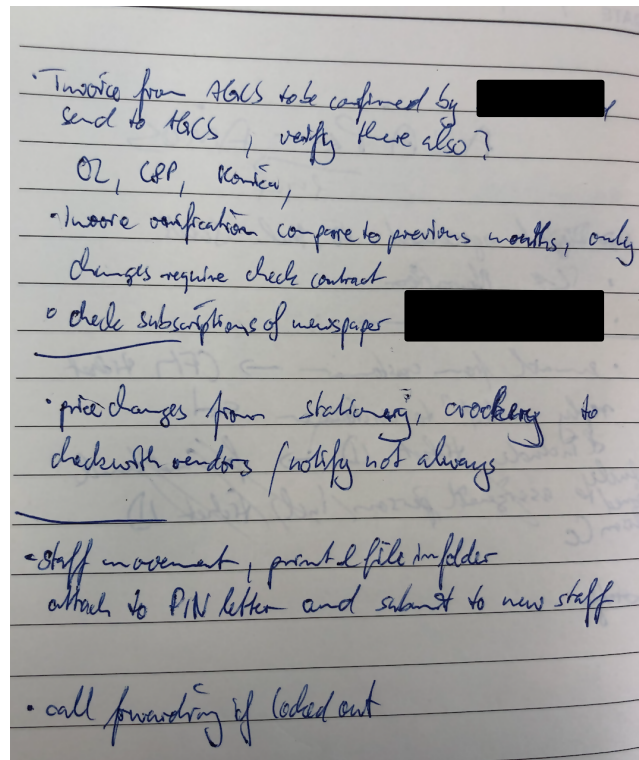 · Invoice from AGCS to be confirmed by
send to AGCS, verify there also?
OZ, C&P, Konica,
· Invoice verification compare to previous months, only
changes require check contract
o check subscriptions of newspaper
· price changes from stationery, crockery to
check with vendors / notify not always
- staff movement, print & file in folder
attach to PIN letter and submit to new staff
· call forwarding if locked out